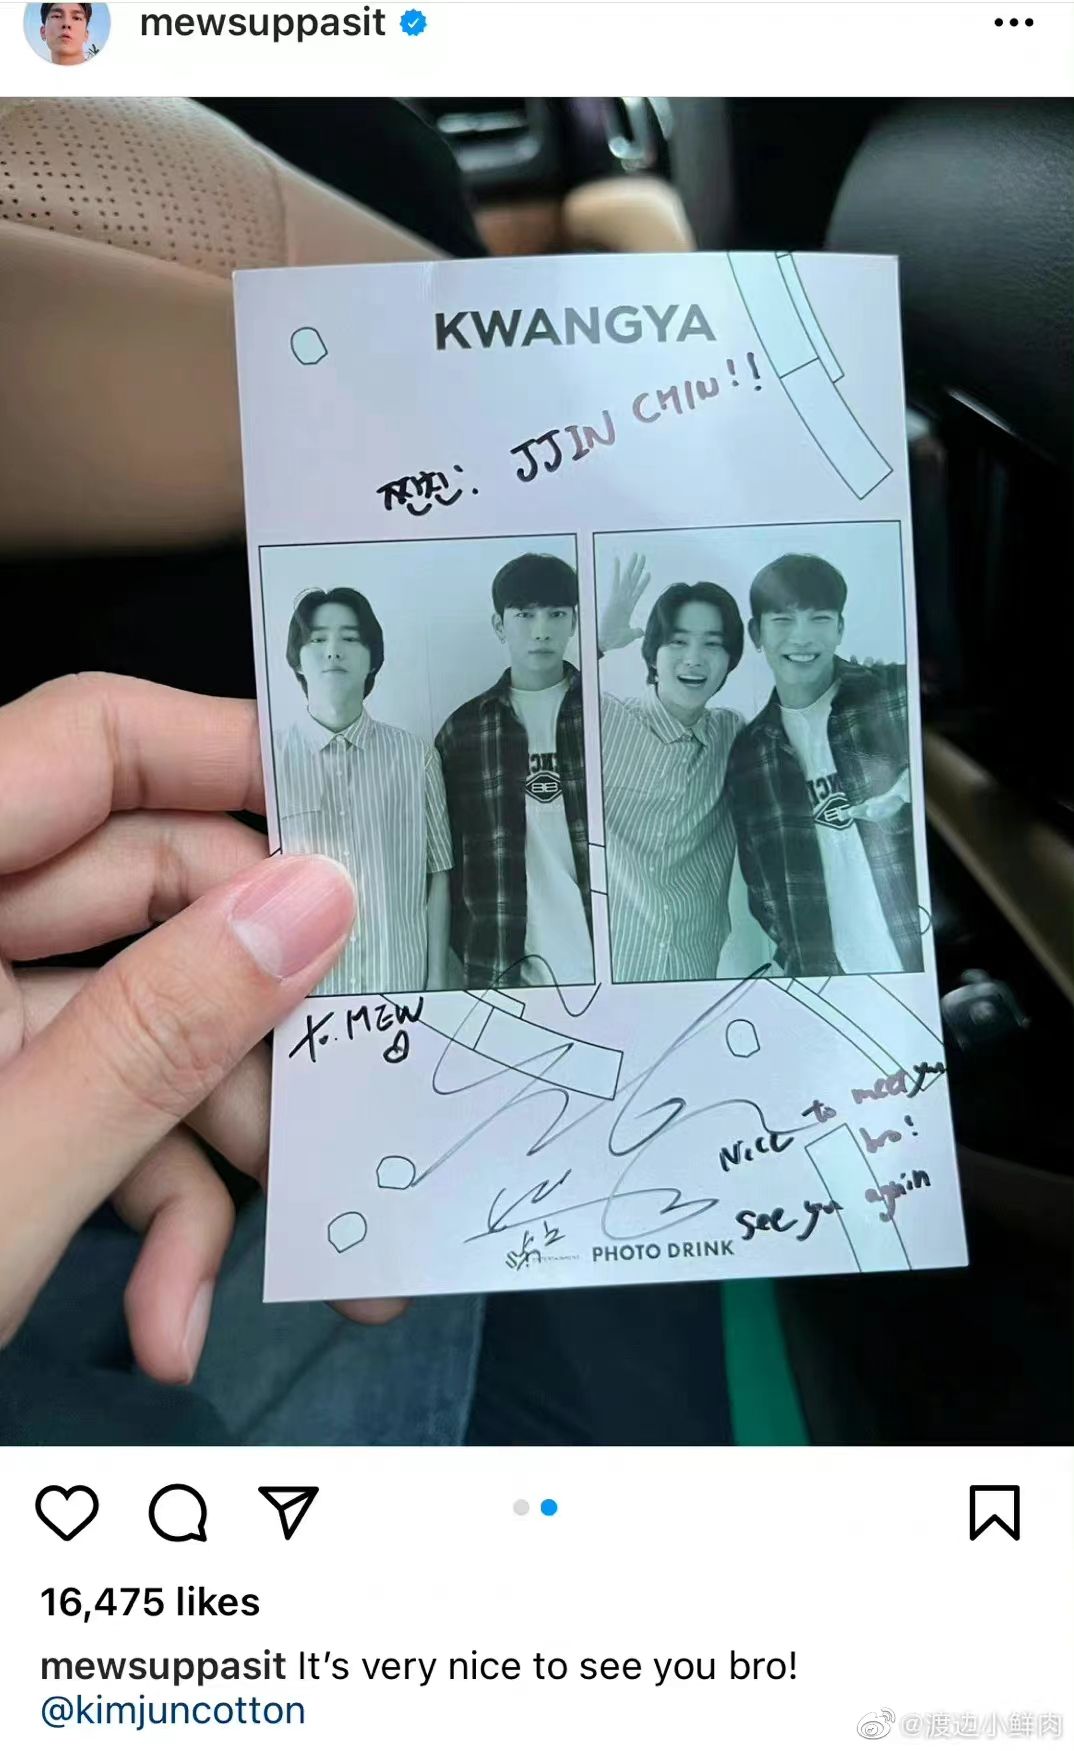 mewsuppasit
KWANGYA
찐친: JJIN CHIN!!
to. MEW
Nice to meet you
bro!
see you again
PHOTO DRINK
16,475 likes
mewsuppasit It's very nice to see you bro!
@kimjuncotton
@渡边小鲜肉